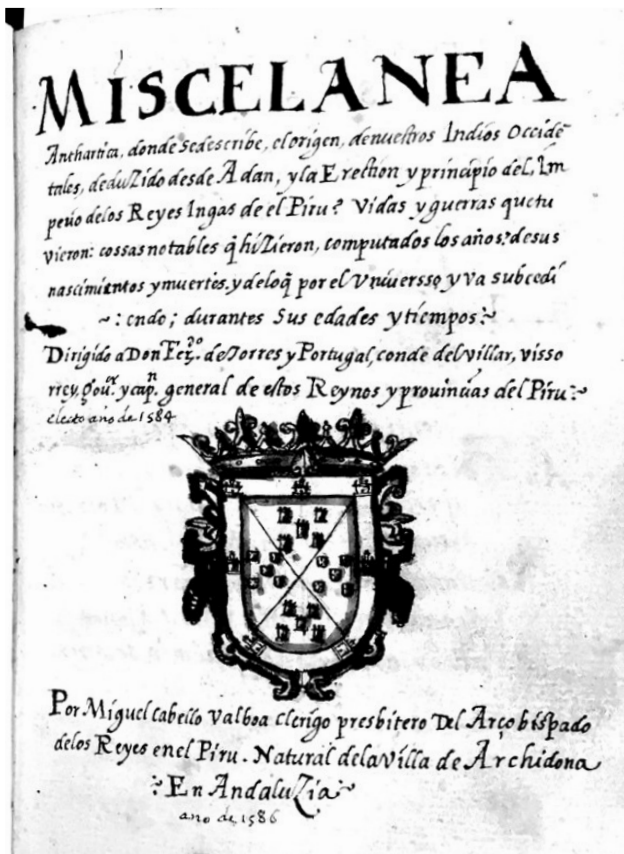 MISCELANEA
Anthartica, donde sedescribe, el origen, denuestros Indios Occidē
tales, deduZido desde Adan, yla Erection y principio del, Im
perio delos Reyes Ingas de el Piru? Vidas y guerras quetu
vieron: cossas notables q̃ hiZieron, computados los años? desus
nascimientos y muertes. y deloq̃ por el Vniuersso y Va subcedi
~: endo; durantes Sus edades y tiempos:~
Dirigido a Don Fer.do de Torres y Portugal, conde del villar, visso
rrey, gou.or y cap.n general de estos Reynos y prouinçias del Piru:~
electo año de 1584
Por Miguel cabello Valboa Clerigo presbitero Del Arçobispado
delos Reyes enel Piru. Natural dela Villa de Archidona
~: En AndaluZia:~
año de 1586